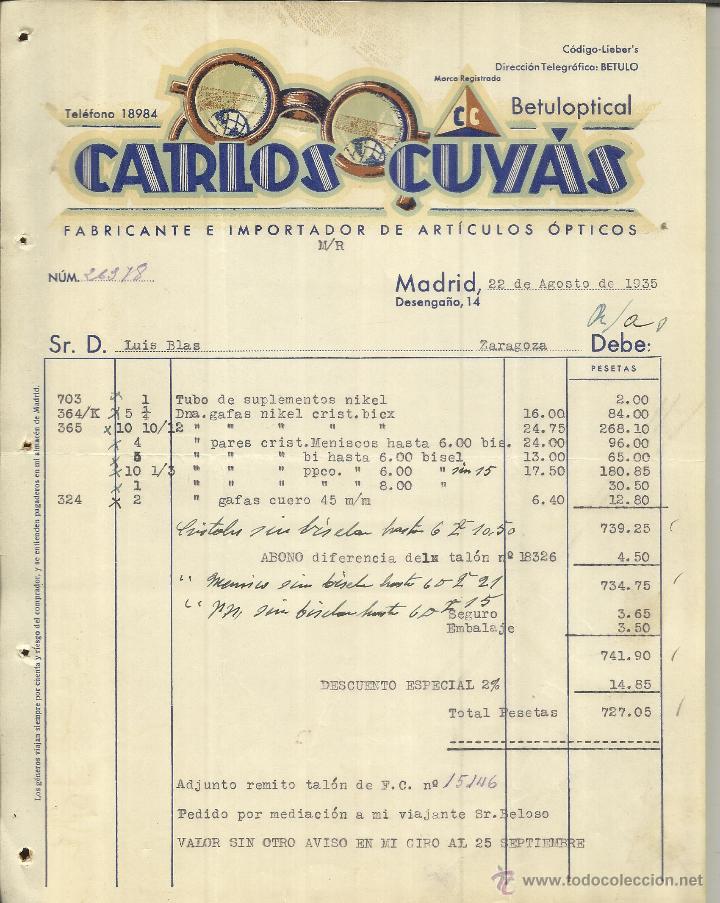 Código-Lieber's
Dirección Telegráfica: BETULO
Marca Registrada
Teléfono 18984
CC
Betuloptical
CARLOS CUYÁS
FABRICANTE E IMPORTADOR DE ARTÍCULOS ÓPTICOS
M/R
NÚM. 26978
Madrid, 22 de Agosto de 1935
Desengaño, 14
Sr. D. Luis Blas Zaragoza Debe:
PESETAS
703 x 1 Tubo de suplementos nikel 2.00
364/K x 5 1/4 Dna. gafas nikel crist.bicx 16.00 84.00
365 x 10 10/12 " " " " " 24.75 268.10
x 4 " pares crist.Meniscos hasta 6.00 bis. 24.00 96.00
x 5 " " " bi hasta 6.00 bisel 13.00 65.00
x 10 1/3 " " " ppco. " 6.00 " sin 15 17.50 180.85
x 1 " " " " " 8.00 " 30.50
324 x 2 " gafas cuero 45 m/m 6.40 12.80
Cristales sin biselar hasta 6 10.50 739.25
ABONO diferencia delx talón nº 18326 4.50
" Menisco sin bisela hasta 60 21 734.75
" sin biselar hasta 60 15
Seguro 3.65
Embalaje 3.50
741.90
DESCUENTO ESPECIAL 2% 14.85
Total Pesetas 727.05
Adjunto remito talón de F.C. nº 15146
Pedido por mediación a mi viajante Sr.Beloso
VALOR SIN OTRO AVISO EN MI GIRO AL 25 SEPTIEMBRE
Los géneros viajan siempre por cuenta y riesgo del comprador, y se entienden pagaderos en mi almacén de Madrid.
© www.todocoleccion.net